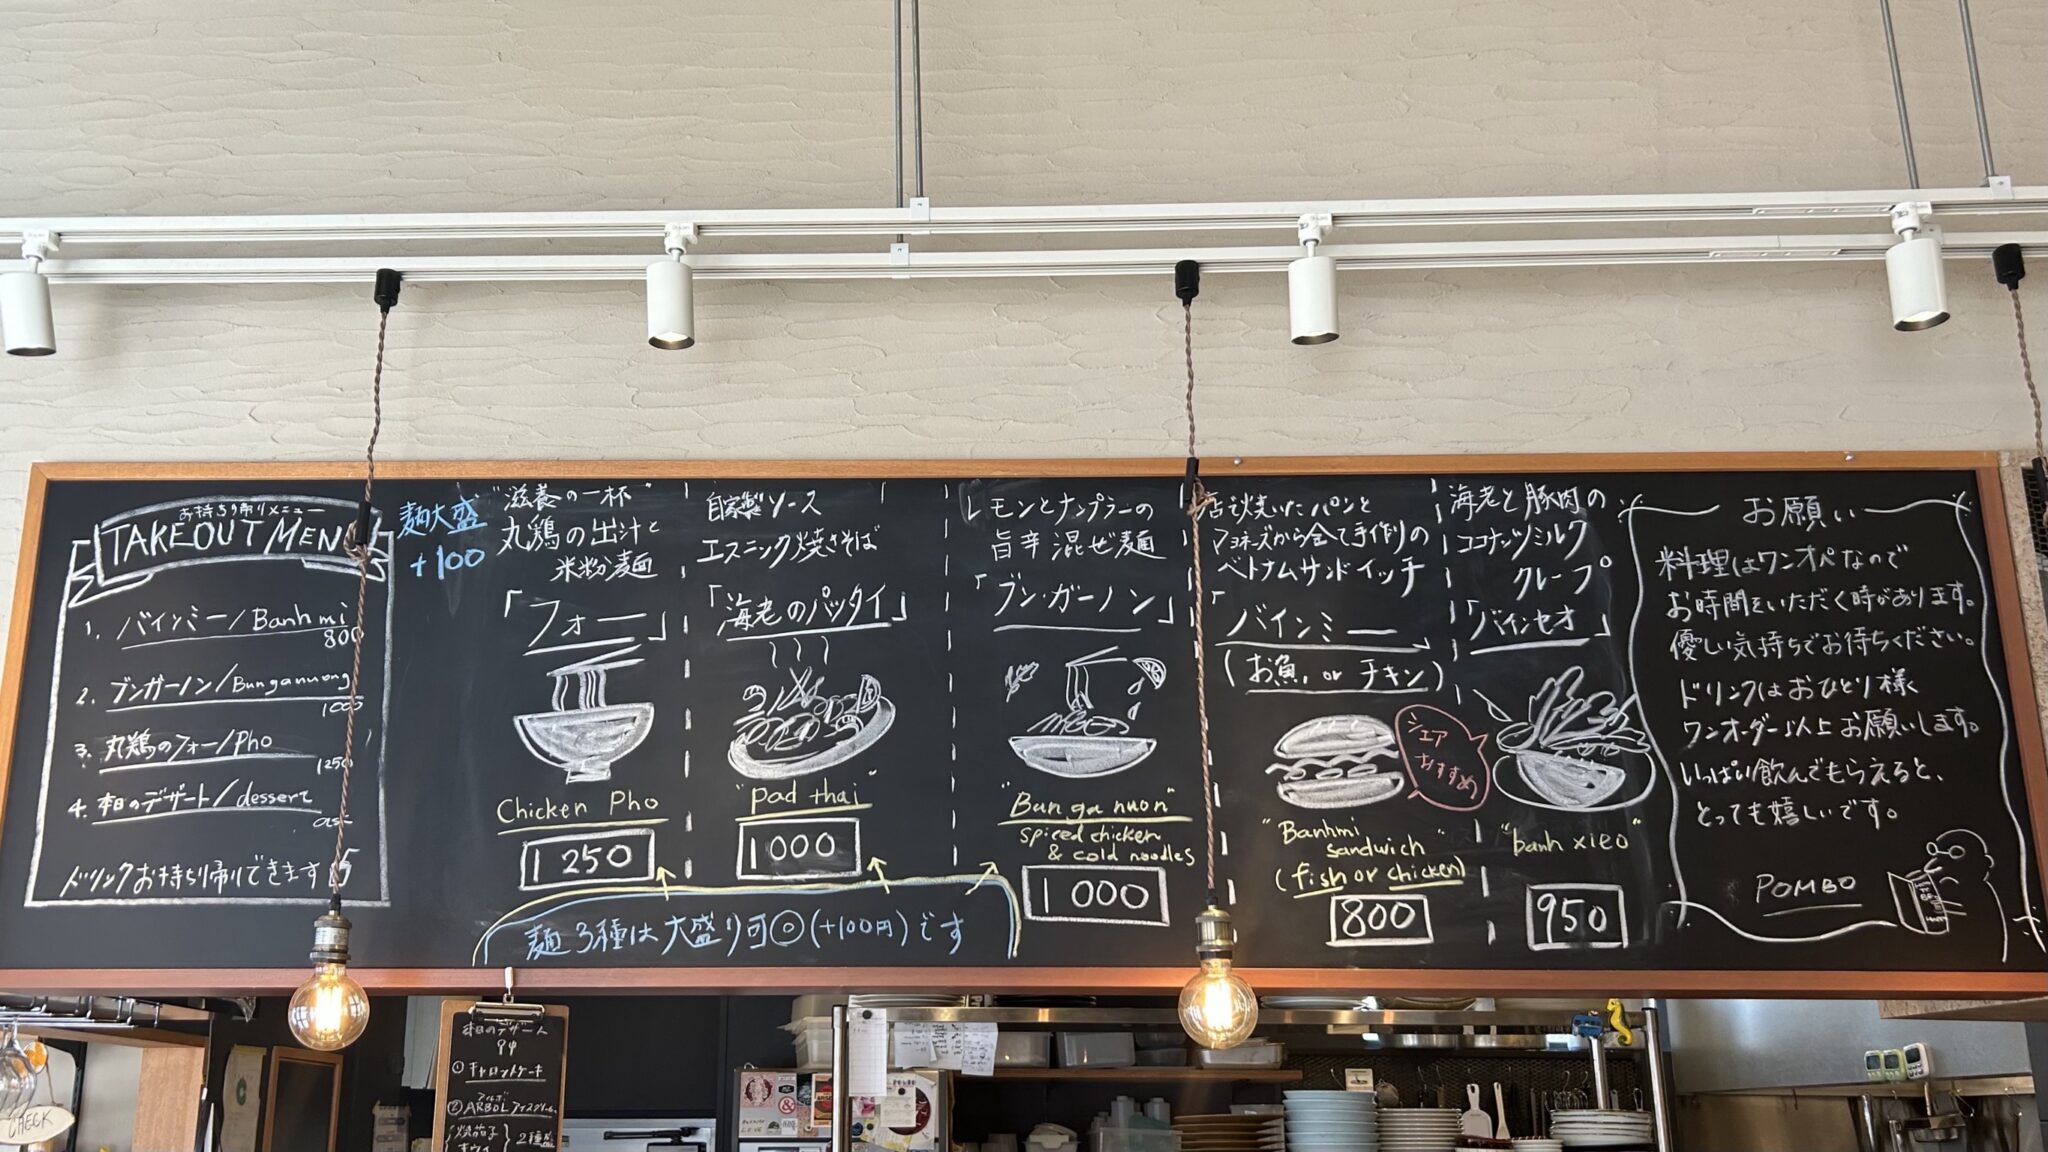 お持ち帰りメニュー
TAKEOUT MEN
1. バインミー/Banh mi
800
2. ブンガーノン/Bunganuong
1000
3. 丸鶏のフォー/Pho
1250
4. 本日のデザート/dessert
ask
ドリンクお持ち帰りできます
麺大盛
+100
"滋養の一杯"
丸鶏の出汁と
米粉麺
「フォー」
Chicken Pho
1250
自家製ソース
エスニック焼きそば
「海老のパッタイ」
"Pad thai"
1000
レモンとナンプラーの
旨辛混ぜ麺
「ブン・ガーノン」
"Bun ga nuon"
spiced chicken
& cold noodles
1000
麺3種は大盛り可◎(+100円)です
店で焼いたパンと
マヨネーズから全て手作りの
ベトナムサンドイッチ
「バインミー」
(お魚 or チキン)
シェア
おすすめ
"Banhmi
sandwich"
(fish or chicken)
800
海老と豚肉の
ココナッツミルク
クレープ
「バインセオ」
"banh xieo"
950
お願い
料理はワンオペなので
お時間をいただく時があります。
優しい気持ちでお待ちください。
ドリンクはおひとり様
ワンオーダー以上お願いします。
いっぱい飲んでもらえると、
とっても嬉しいです。
POMBO
本日のデザート
①キャロットケーキ
②ARBOLアイスクリーム
2種
CHECK